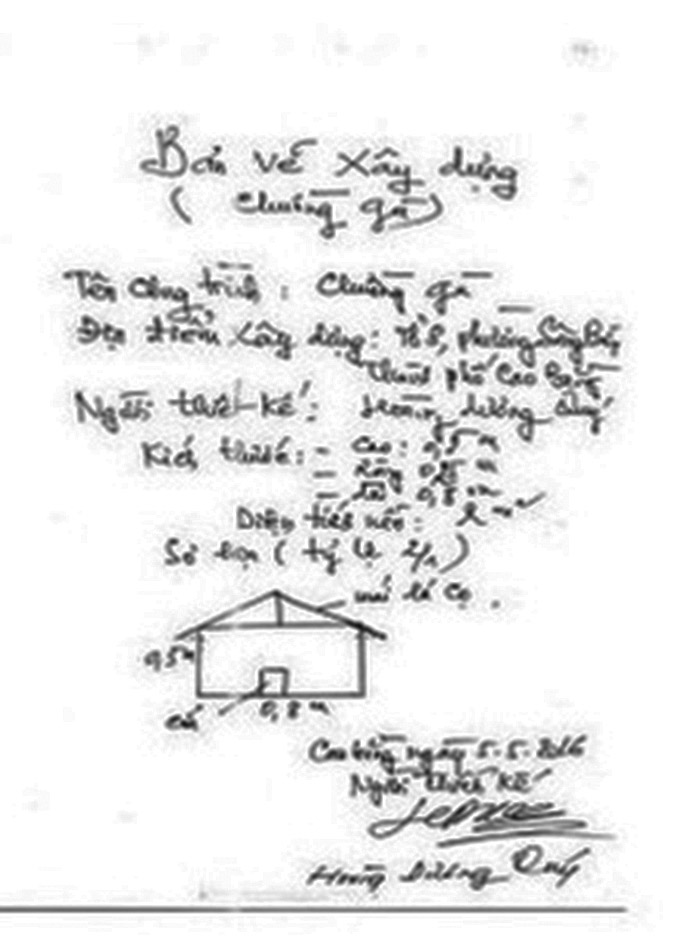 Bản vẽ xây dựng
( Chuồng gà )
Tên công trình : Chuồng gà
Địa điểm xây dựng: Tổ 5, phường Sông Bằng
Thành phố Cao Bằng
Người thiết kế: Hoàng Dương Quý
Kích thước: - cao: 0,5 m
- rộng
- dài 0,8 m
Diện tích nền: 2 m²
Sơ họa ( tỷ lệ 2/1 )
mái lá cọ .
0,5m
cửa
0,8 m
Cao Bằng ngày 5-5-2016
Người thiết kế
Hoàng Dương Quý